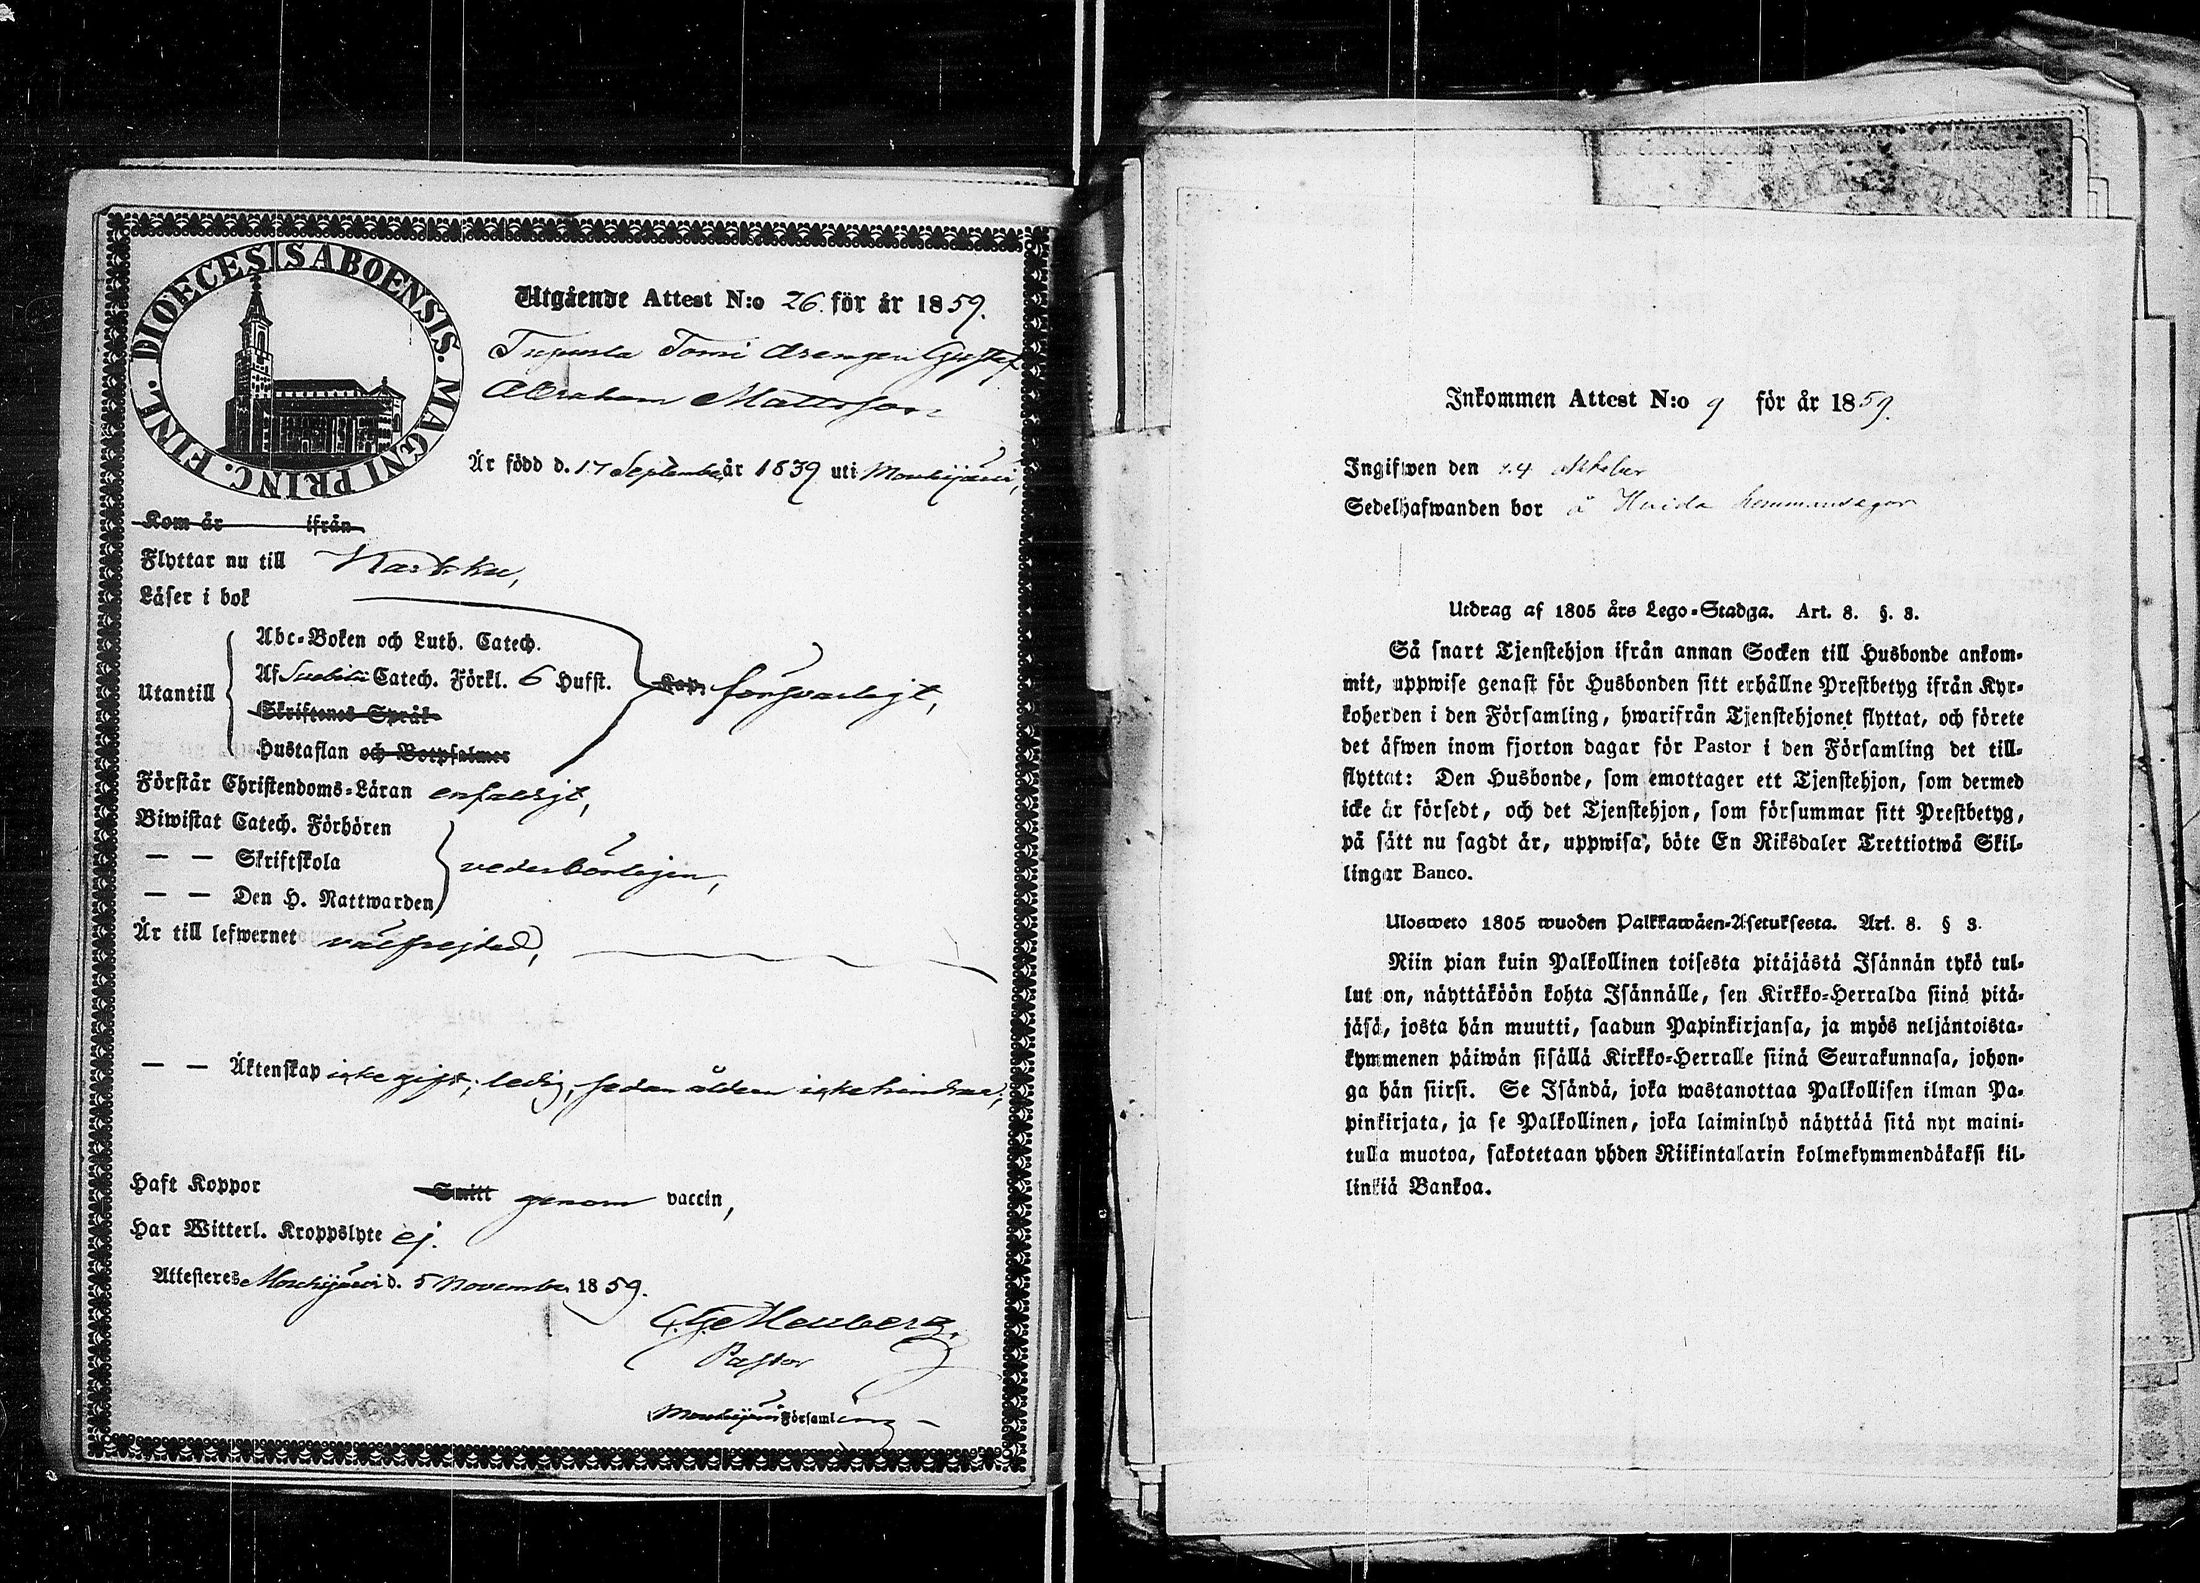 DIOECESIS ABOENSIS. MAGNI PRINC. FINL.
Utgående Attest N:o 26. för år 1859.
Tupurla Tomi drengen Gustaf
Abraham Mattsson
Är född d. 17 September år 1839 uti Mouhijärvi,
Kom år ifrån
Flyttar nu till Karkku,
Läser i bok
Utantill
Abc-Boken och Luth. Catech.
Af Svebilii Catech. Förkl. 6 Hufst.
Skriftenes Språk
Hustaflan och Botpsalmer
Kap. försvarligt,
Förstår Christendoms-Läran enfaldigt,
Biwistat Catech. Förhören
— — Skriftskola
— — Den H. Nattwarden
vederbörligen,
Är till lefwernet välfrejdad,
— — Äktenskap icke gift; ledig, sedan åldern icke hindrar;
Haft Koppor Smitt genom vaccin,
Har Witterl. Kroppslyte ej.
Attesteres Mouhijärvi d. 5 November 1859.
Pastor
Mouhijärvi Församling
Inkommen Attest N:o 9 för år 1859.
Ingifwen den 14 oktober
Sedelhafwanden bor å
Utdrag af 1805 års Lego-Stadga. Art. 8. §. 3.
Så snart Tjenstehjon ifrån annan Socken till Husbonde ankom-
mit, uppwise genast för Husbonden sitt erhållne Prestbetyg ifrån Kyr-
koherden i den Församling, hwarifrån Tjenstehjonet flyttat, och förete
det äfwen inom fjorton dagar för Pastor i den Församling det till-
flyttat: Den Husbonde, som emottager ett Tjenstehjon, som dermed
icke är försedt, och det Tjenstehjon, som försummar sitt Prestbetyg,
på sätt nu sagdt är, uppwisa, böte En Riksdaler Trettiotwå Skil-
lingar Banco.
Ulosweto 1805 wuoden Palkkawäen-Asetuksesta. Art. 8. § 3.
Niin pian kuin Palkollinen toisesta pitäjästä Isännän tykö tul-
lut on, näyttäköön kohta Isännälle, sen Kirkko-Herralda siinä pitä-
jäsä, josta hän muutti, saadun Papinkirjansa, ja myös neljäntoista-
kymmenen päiwän sisällä Kirkko-Herralle siinä Seurakunnasa, johon-
ga hän siirsi. Se Isändä, joka wastanottaa Palkollisen ilman Pa-
pinkirjata, ja se Palkollinen, joka laiminlyö näyttää sitä nyt maini-
tulla muotoa, sakotetaan yhden Riikintalarin kolmekymmendäkaksi kil-
linkiä Bankoa.